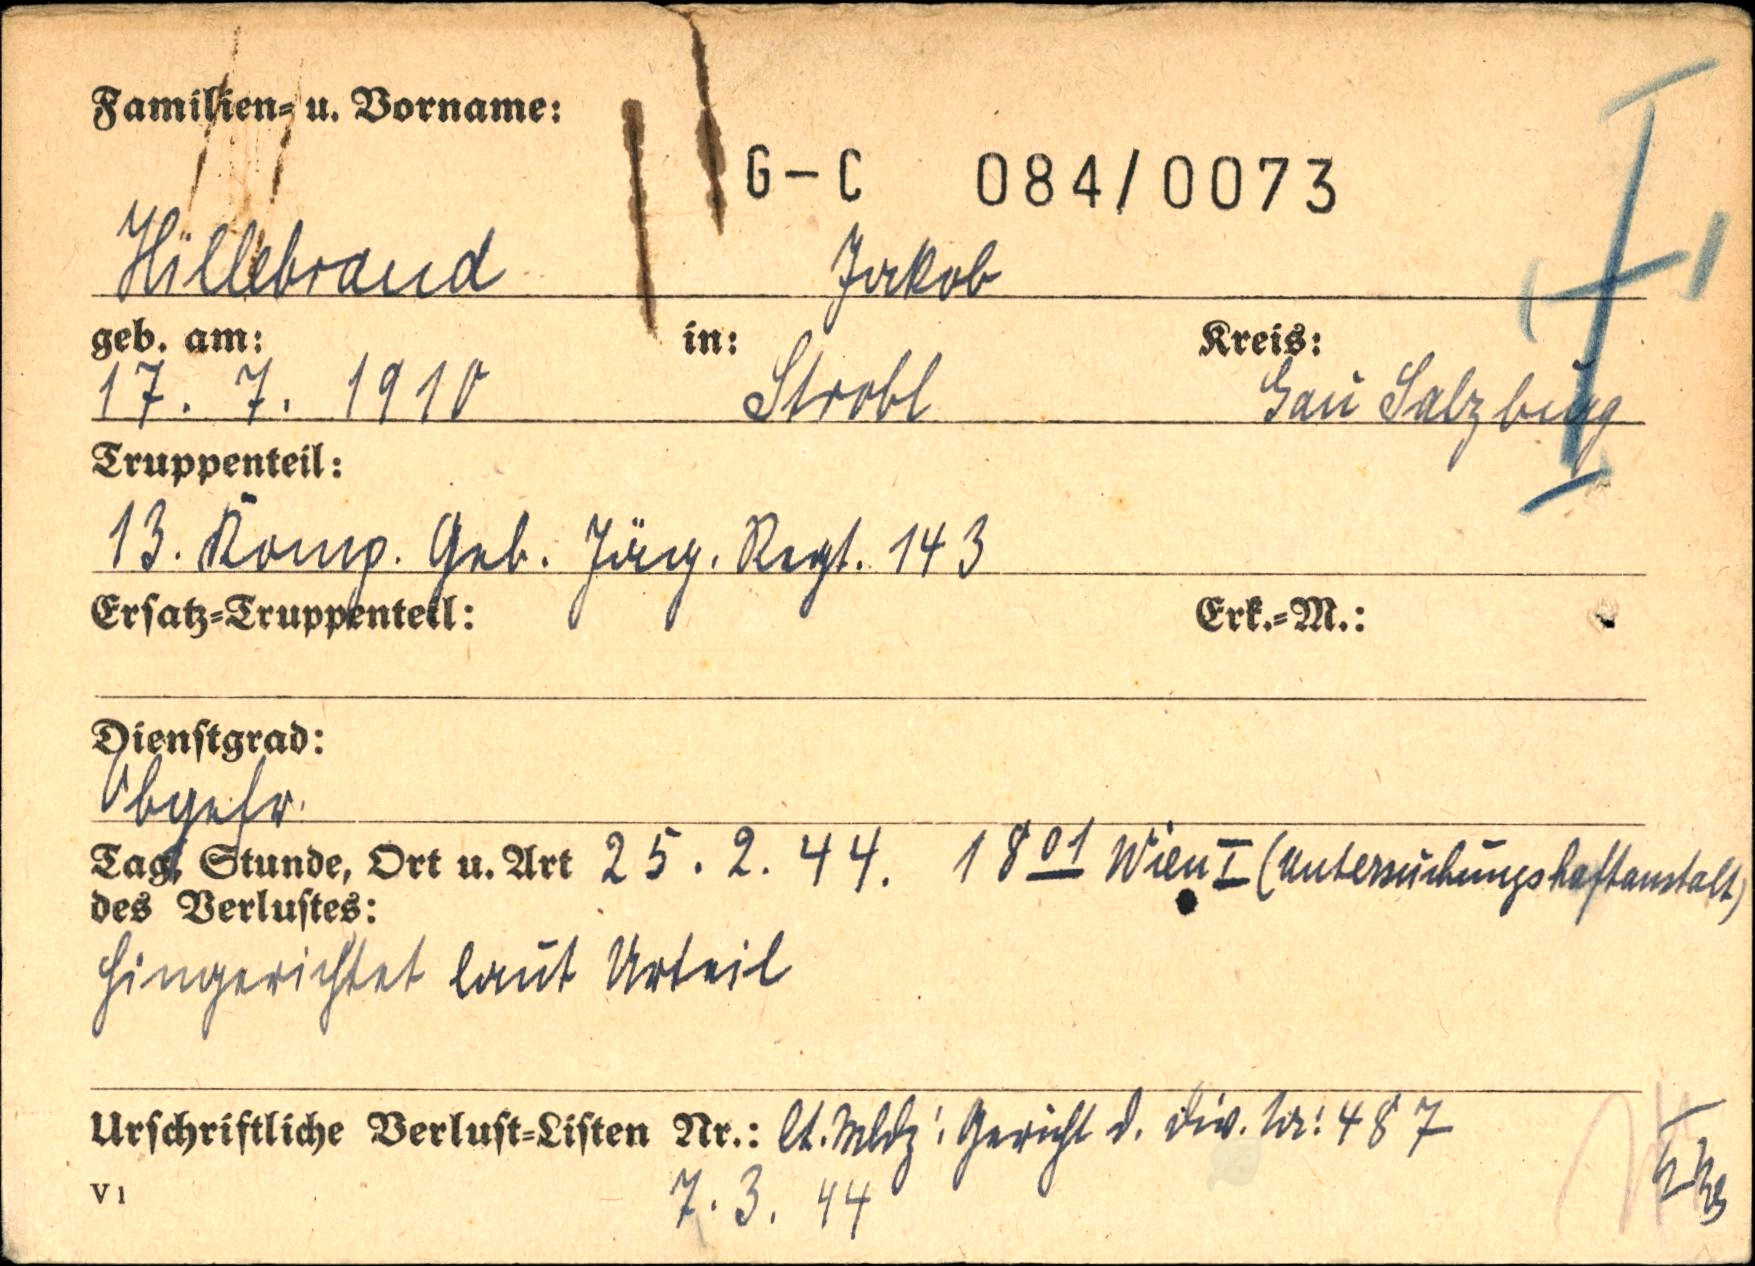 Familien- u. Vorname:
G-C 084/0073
Hillebrand Jakob
geb. am: in: Kreis:
17. 7. 1910 Strobl Gau Salzburg
Truppenteil:
13. Komp. Geb. Jäg. Regt. 143
Ersatz-Truppenteil: Erk.-M.:
Dienstgrad:
Obgefr.
Tag, Stunde, Ort u. Art 25. 2. 44. 18 01 Wien I (Untersuchungshaftanstalt)
des Verlustes:
hingerichtet laut Urteil
Urschriftliche Verlust-Listen Nr.: lt. Mldg: Gericht d. Div. Nr: 487
7. 3. 44
V 1